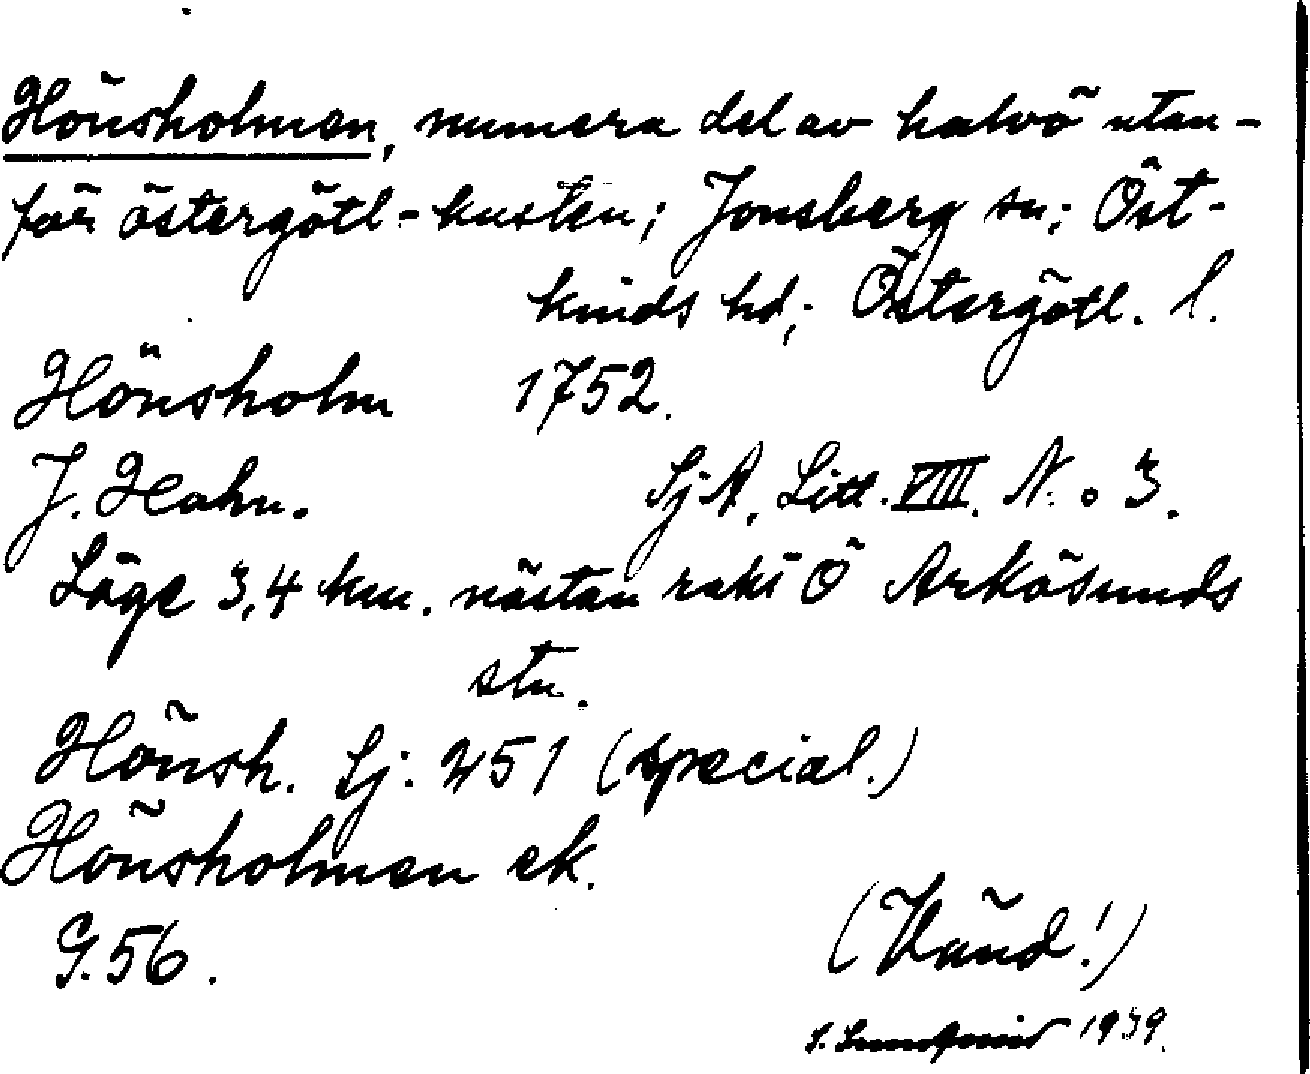 Hönsholmen, numera del av halvö utan-
för östergötl-kusten; Jonsberg sn; Öst-
kinds hd; Östergötl. l.
Hönsholm 1752.
J. Hahn. SjA. Litt. VIII. N. o 3.
Läge 3,4 km. nästan rakt Ö Arkösunds
stn.
Hönsh. Sj: 251 (special.)
Hönsholmen ek.
G. 56.
(Vänd!)
S. Lundqvist 1939.